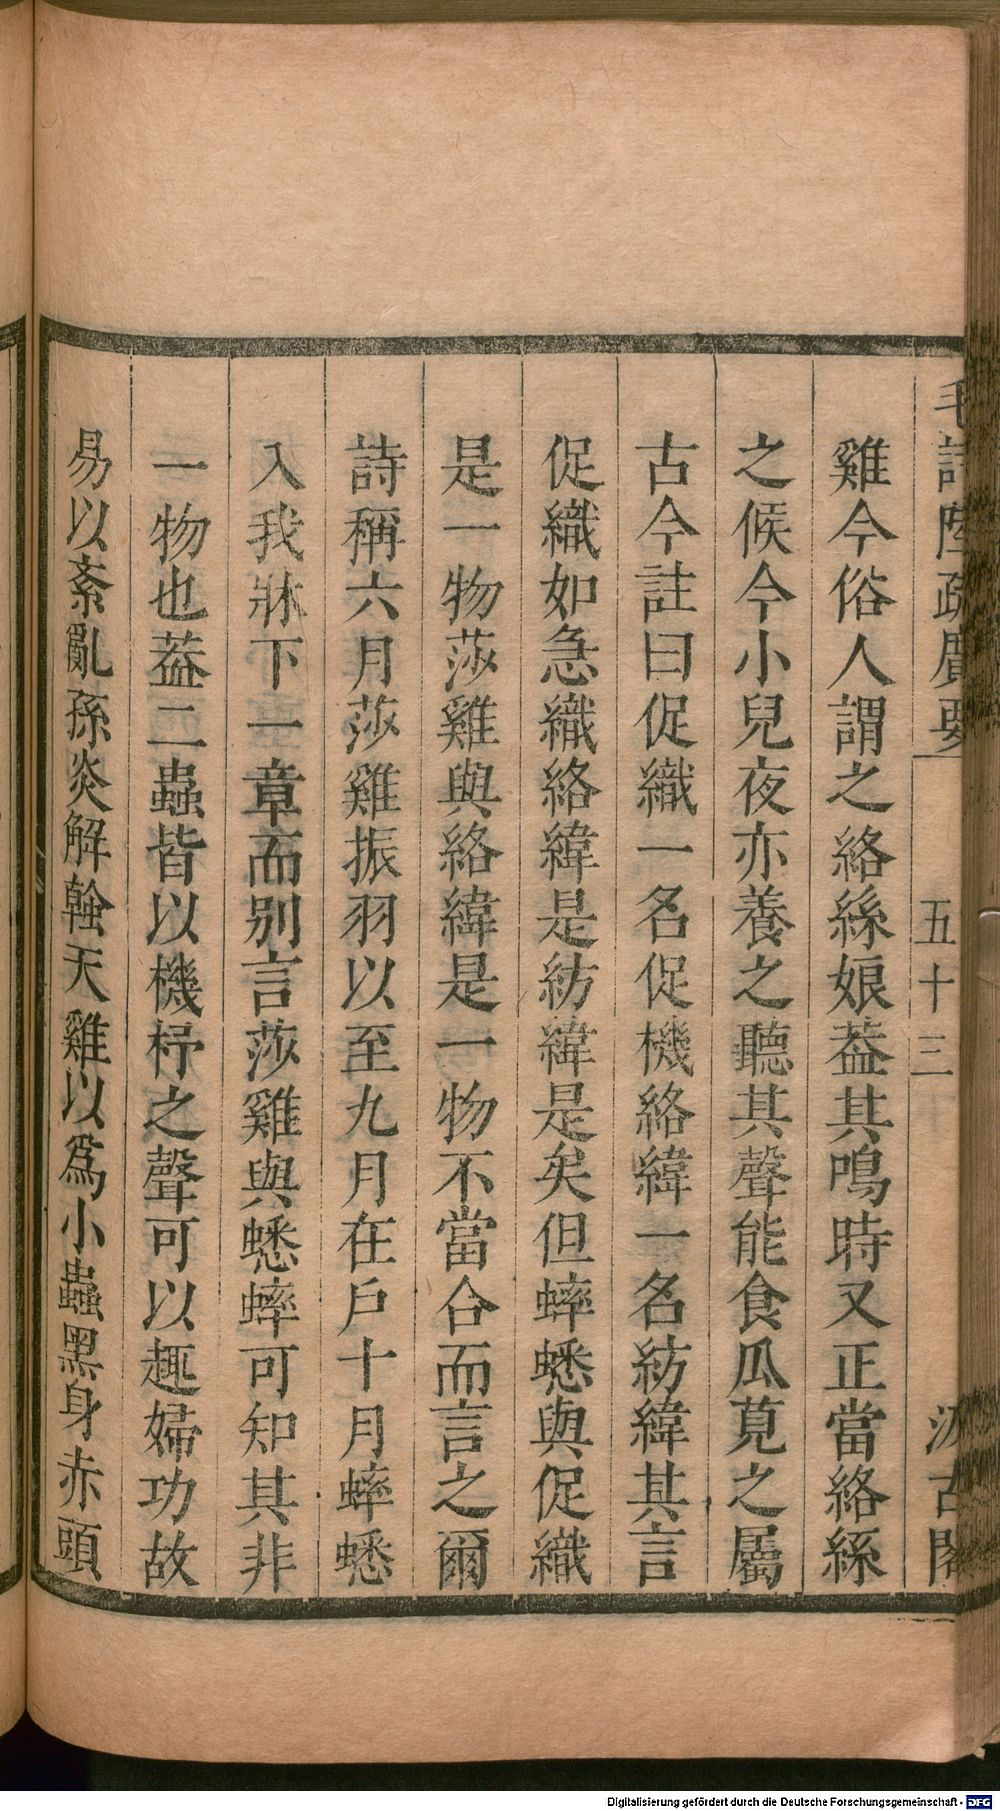 毛詩陸疏廣要 五十三 汲古閣
雞今俗人謂之絡絲娘葢其鳴時又正當絡絲
之候今小兒夜亦養之聽其聲能食瓜莧之屬
古今註曰促織一名促機絡緯一名紡緯其言
促織如急織絡緯是紡緯是矣但蟀蟋與促織
是一物莎雞與絡緯是一物不當合而言之爾
詩稱六月莎雞振羽以至九月在戶十月蟀蟋
入我牀下一章而别言莎雞與蟋蟀可知其非
一物也葢二蟲皆以機杼之聲可以趣婦功故
易以紊亂孫炎解螒天雞以為小蟲黑身赤頭
Digitalisierung gefördert durch die Deutsche Forschungsgemeinschaft - DFG